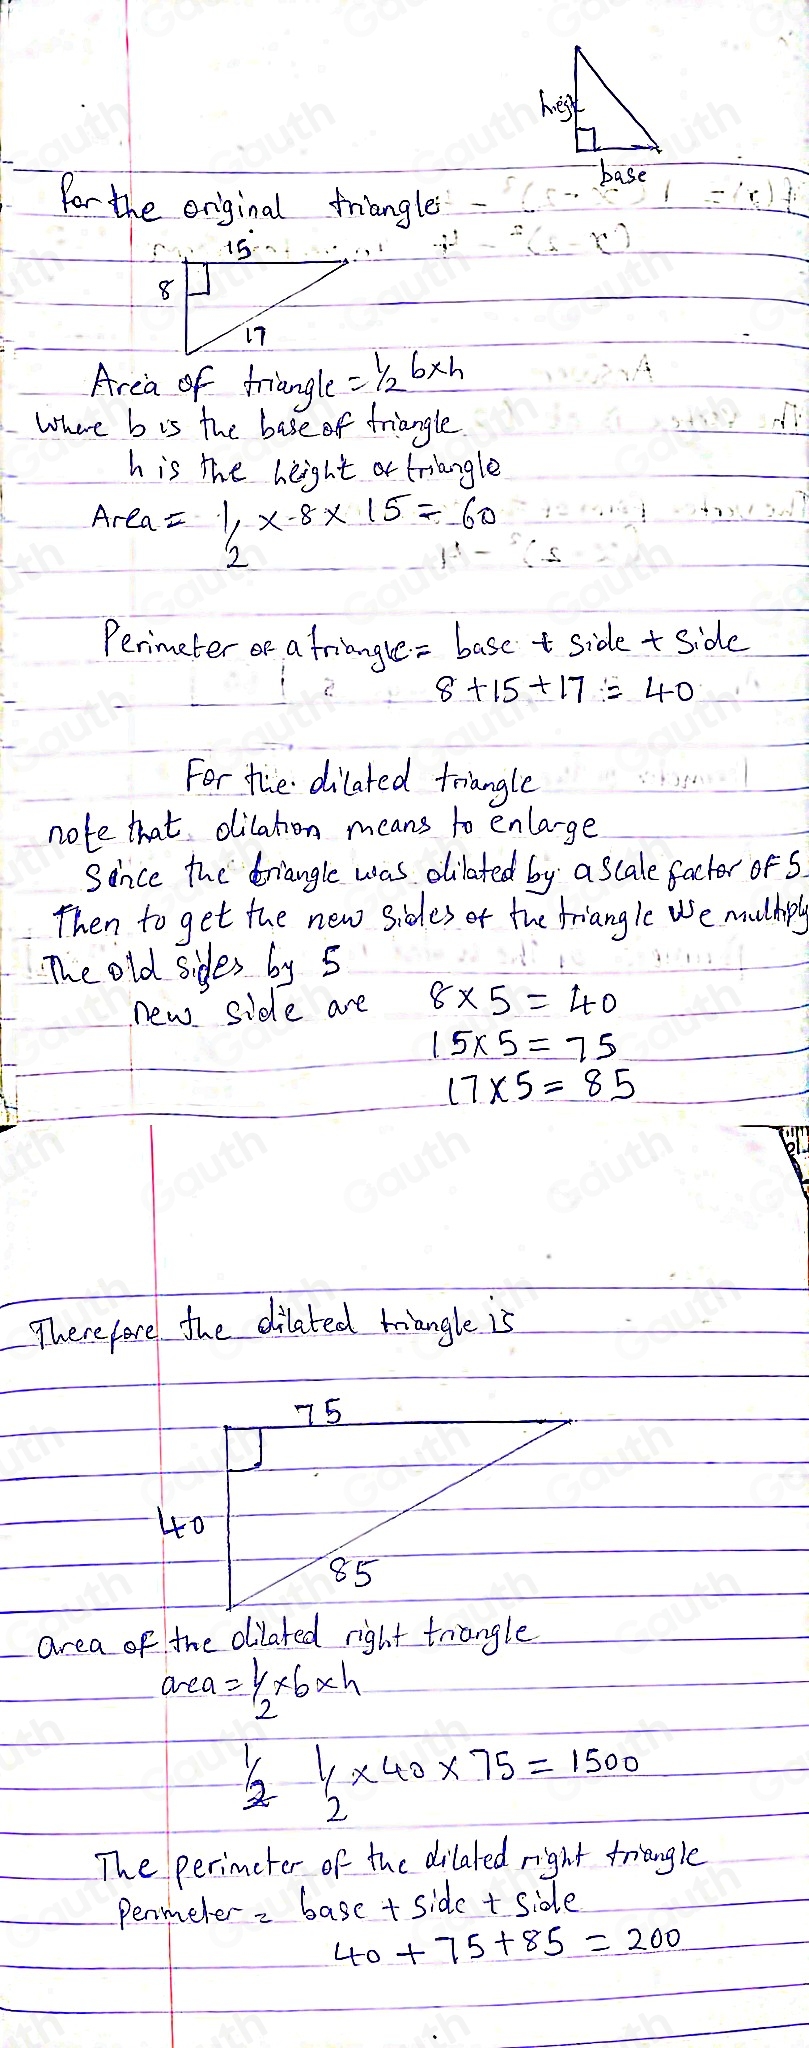 height
base
for the original triangle
15
8
17
Area of triangle = 1/2 b×h
Where b is the base of triangle
h is the height of triangle
Area = 1/2 × 8 × 15 = 60
Perimeter of a triangle = base + side + side
8 + 15 + 17 = 40
For the dilated triangle
note that dilation means to enlarge
Since the triangle was dilated by a scale factor of 5
Then to get the new sides of the triangle We multiply
The old sides by 5
new side are 8 × 5 = 40
15 × 5 = 75
17 × 5 = 85
Therefore the dilated triangle is
75
40
85
area of the dilated right triangle
area = 1/2 × b × h
1/2 1/2 × 40 × 75 = 1500
The perimeter of the dilated right triangle
Perimeter = base + side + side
40 + 75 + 85 = 200